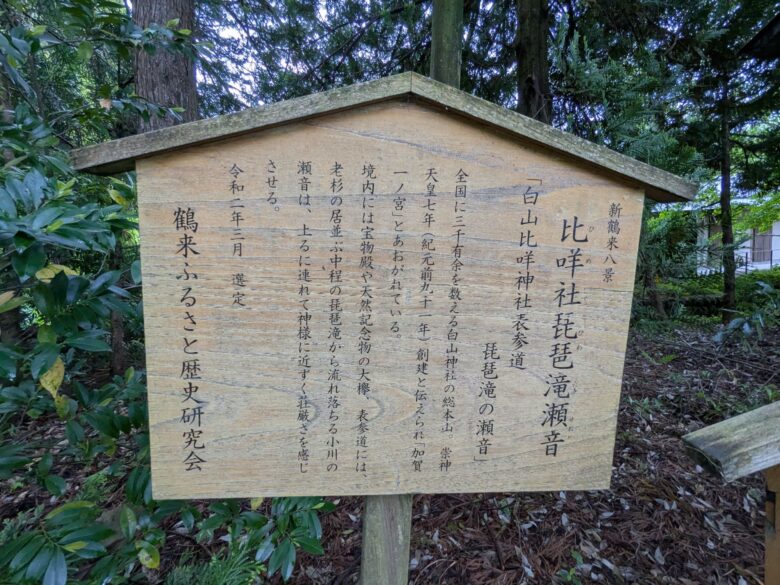 新鶴来八景
比咩社琵琶滝瀬音
「白山比咩神社表参道
琵琶滝の瀬音」
全国に三千有余を数える白山神社の総本山。崇神
天皇七年（紀元前九十一年）創建と伝えられ「加賀
一ノ宮」とあおがれている。
境内には宝物殿や天然記念物の大欅、表参道には、
老杉の居並ぶ中程の琵琶滝から流れ落ちる小川の
瀬音は、上るに連れて神様に近ずく荘厳さを感じ
させる。
令和二年三月　選定
鶴来ふるさと歴史研究会